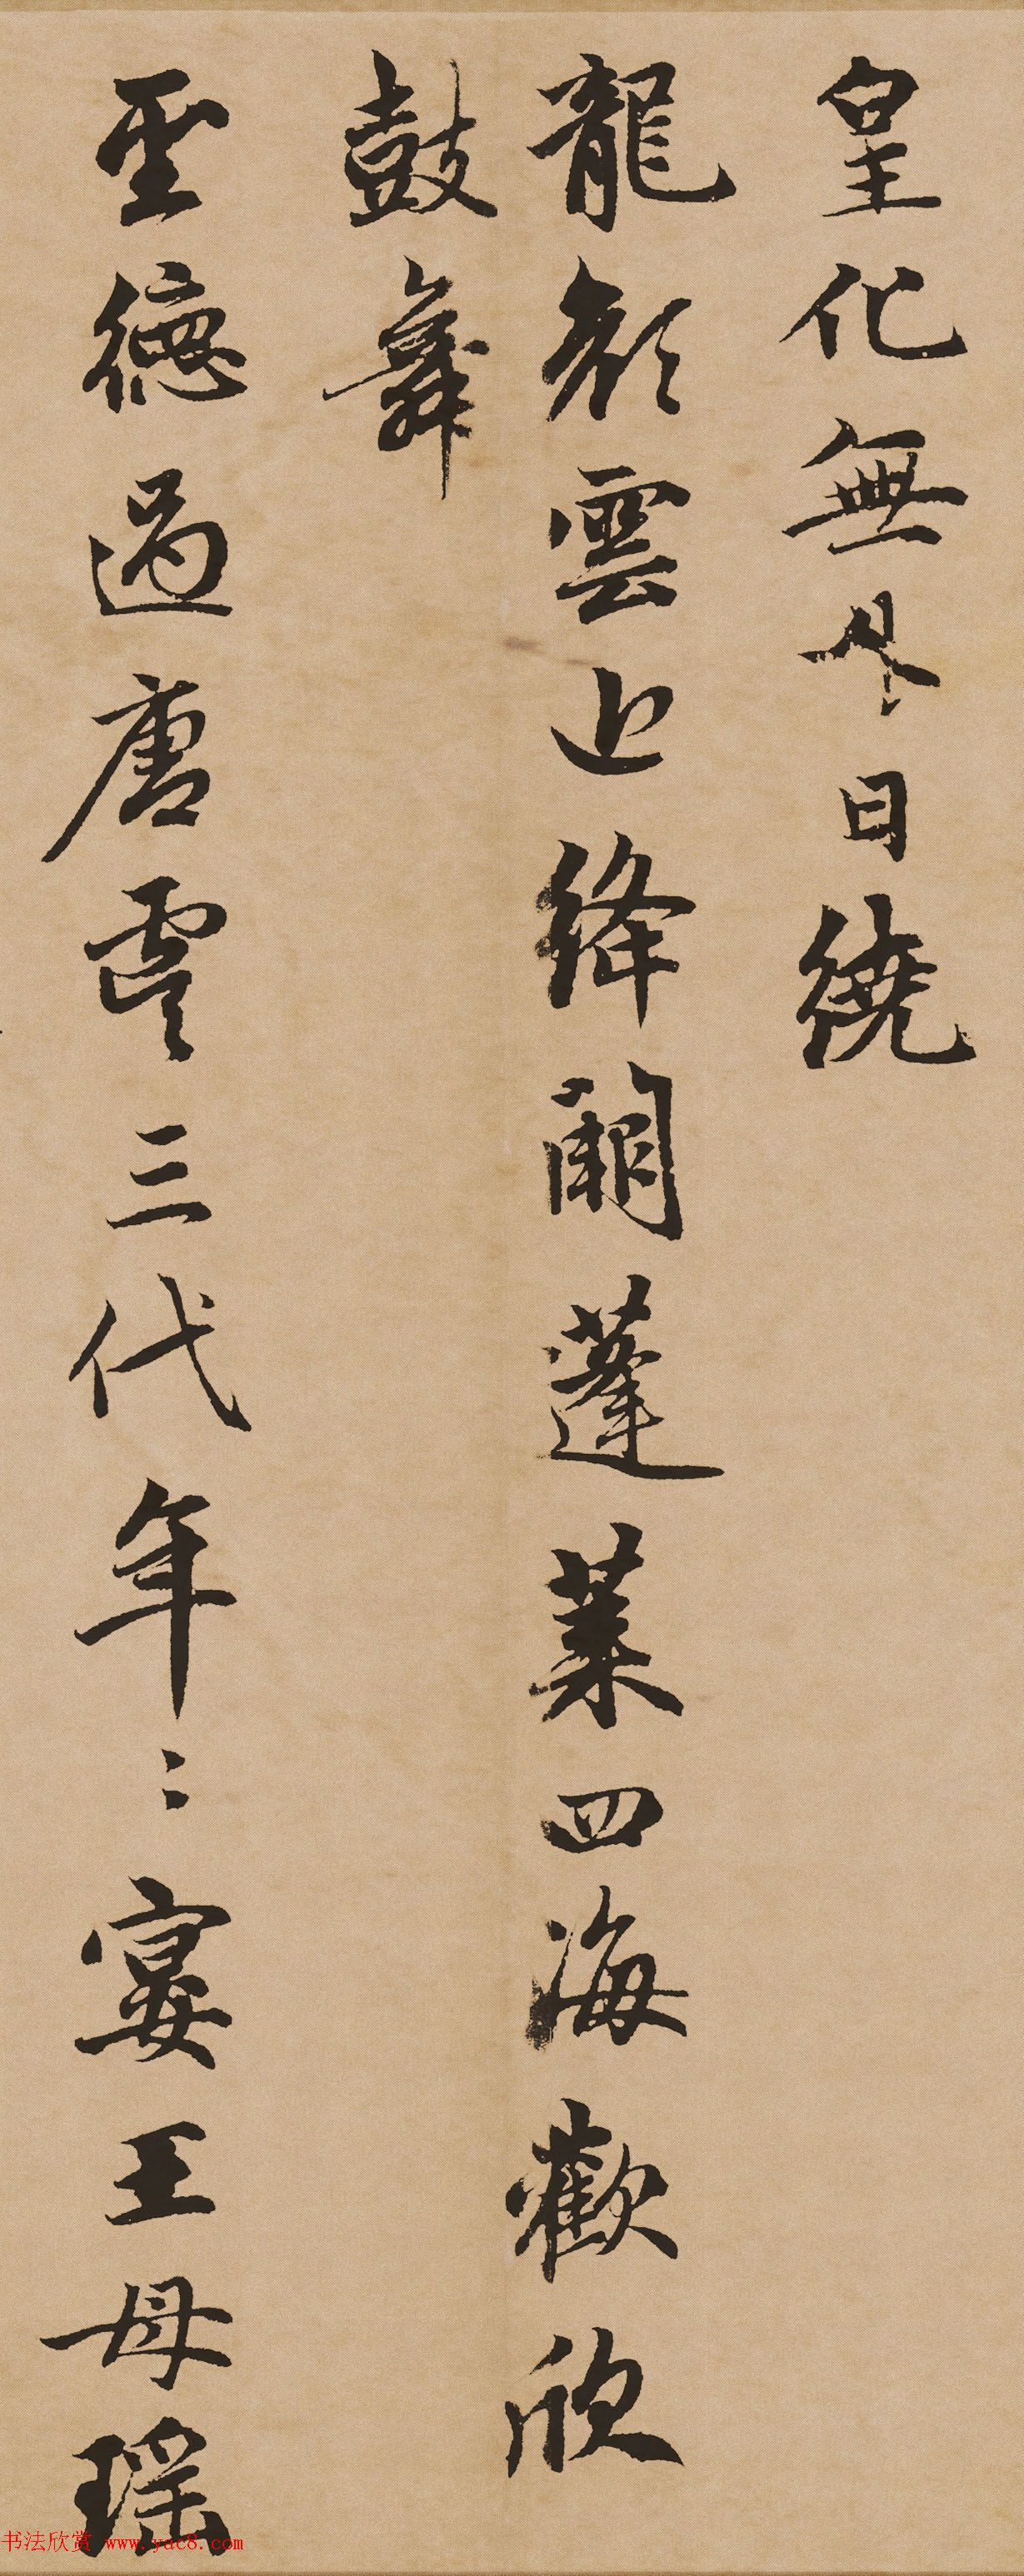 皇化無日繞
龍顏雲近絳闕蓬萊四海歡欣
鼓舞
聖德過唐虞三代年〻宴王母瑤
书法欣赏 www.yac8.com